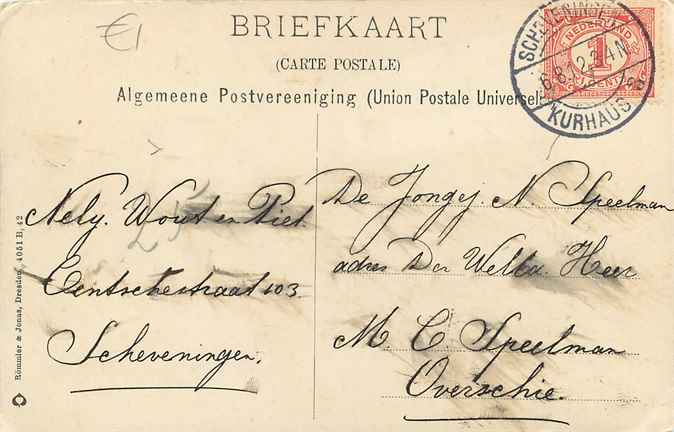 €1
BRIEFKAART
(CARTE POSTALE)
Algemeene Postvereeniging (Union Postale Universel
NEDERLAND
1
CENT
KURHAUS
Nely. Wout en Piet.
straat 103.
Scheveningen.
De Jongej. N. Speelman
adres Den Heer
M. C. Speelman
Overschie.
Römmler & Jonas, Dresden. 4051 B, 42